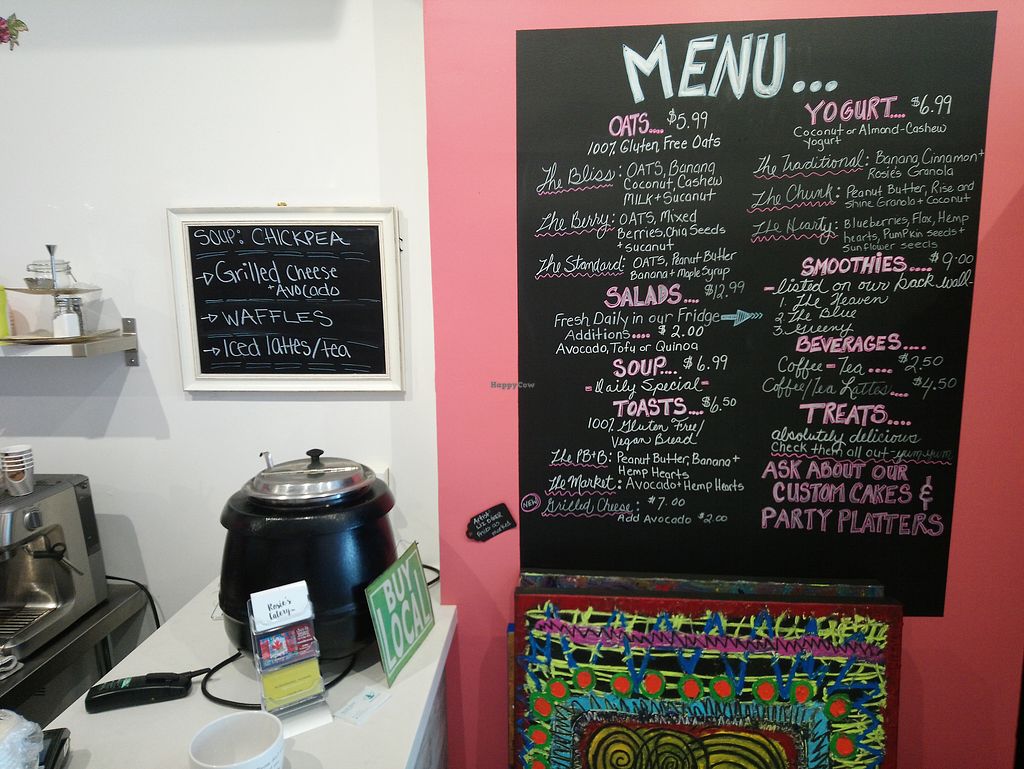 SOUP: CHICKPEA
Grilled Cheese
+ Avocado
WAFFLES
Iced lattes/tea
MENU...
OATS.... $5.99
100% Gluten Free Oats
The Bliss: OATS, Banana
Coconut, Cashew
MILK + Sucanut
The Berry: OATS, Mixed
Berries, Chia Seeds
+ sucanut
The Standard: OATS, Peanut Butter
Banana + Maple Syrup
SALADS.... $12.99
Fresh Daily in our Fridge
Additions.... $2.00
Avocado, Tofu or Quinoa
SOUP... $6.99
- Daily Special -
TOASTS.... $6.50
100% Gluten Free/
Vegan Bread
The PB+B: Peanut Butter, Banana +
Hemp Hearts
The Market: Avocado + Hemp Hearts
NEW
Grilled Cheese: $7.00
Add Avocado $2.00
YOGURT.... $6.99
Coconut or Almond-Cashew
Yogurt
The Traditional: Banana, Cinnamon +
Rosie's Granola
The Chunk: Peanut Butter, Rise and
shine Granola + Coconut
The Hearty: Blueberries, Flax, Hemp
hearts, Pumpkin seeds +
sunflower seeds
SMOOTHIES.... $9.00
- listed on our back wall -
1. The Heaven
2. The Blue
3. Greeny
BEVERAGES....
Coffee - Tea .... $2.50
Coffee/Tea Lattes.... $4.50
TREATS....
absolutely delicious
Check them all out - yum yum
ASK ABOUT OUR
CUSTOM CAKES &
PARTY PLATTERS
HappyCow
Rosie's
Eatery
BUY
LOCAL